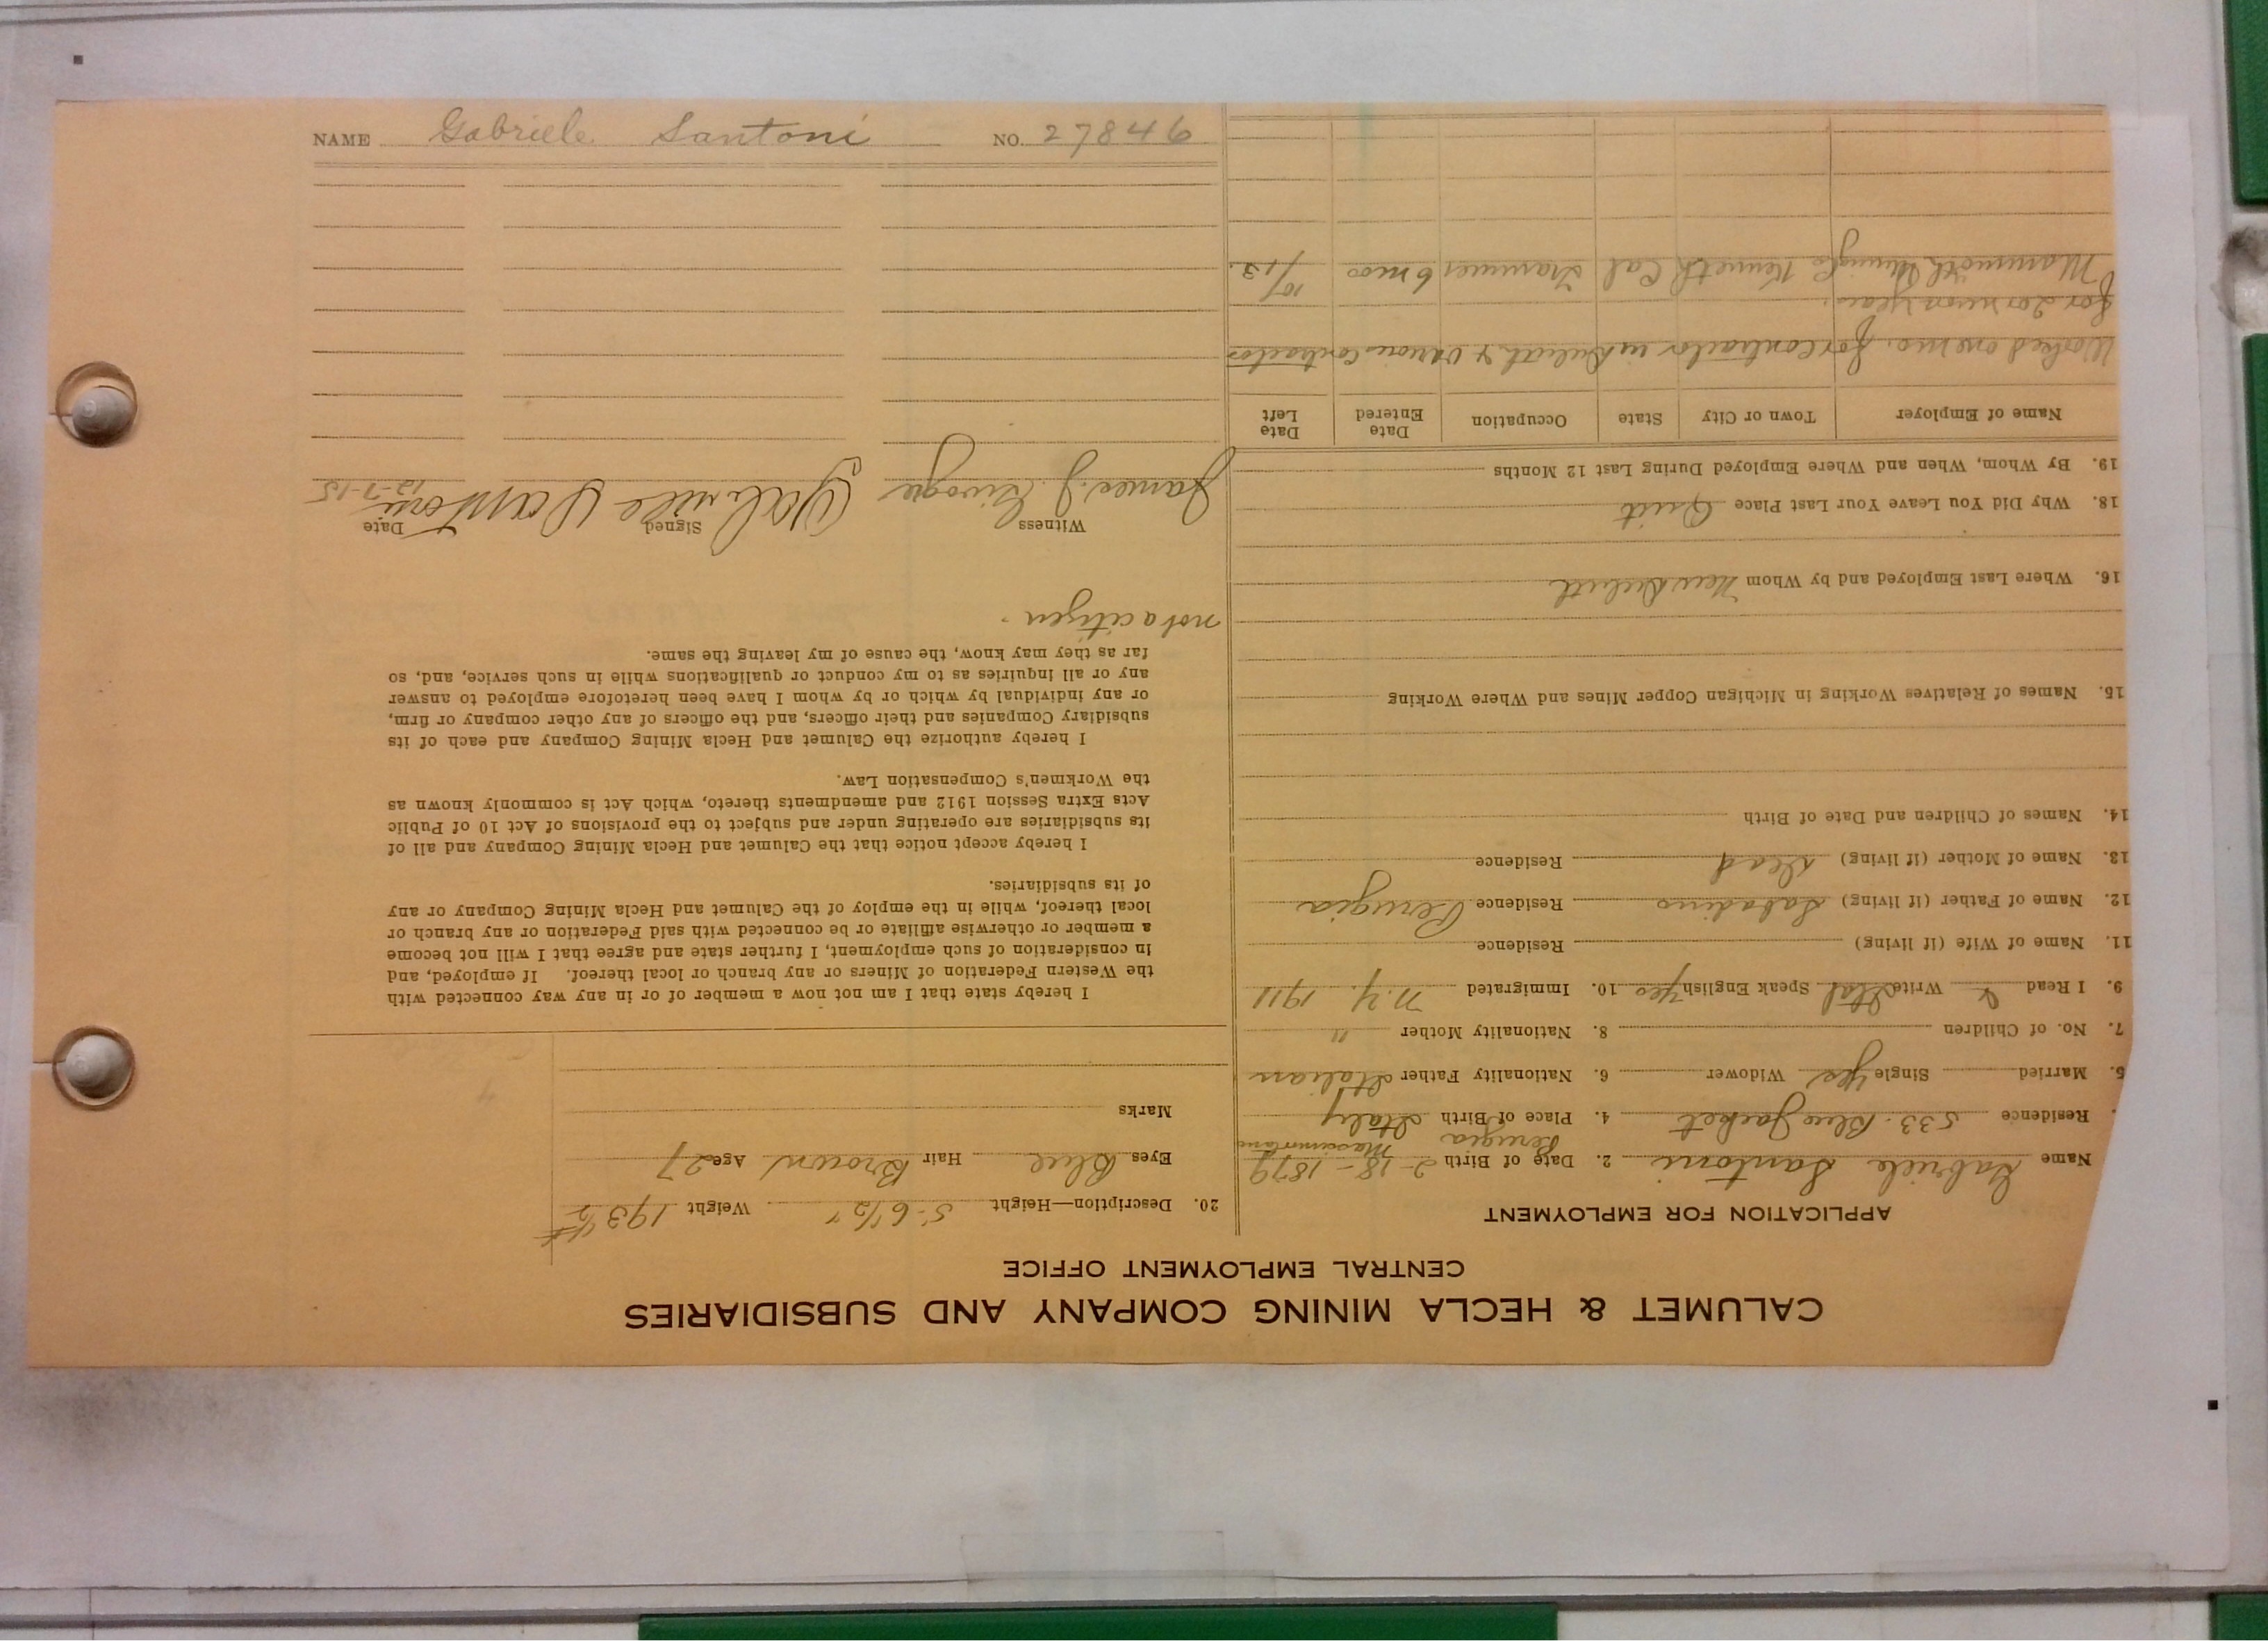 NAME Gabriele Santoni NO. 27846
CALUMET & HECLA MINING COMPANY AND SUBSIDIARIES
CENTRAL EMPLOYMENT OFFICE
APPLICATION FOR EMPLOYMENT
Name Gabriele Santoni 2. Date of Birth 2-18-1879
Perugia
Residence 533. Blue Jacket 4. Place of Birth Italy
5. Married Single Yes Widower 6. Nationality Father Italian
7. No. of Children 8. Nationality Mother "
9. I Read & Write Ital Speak English Yes 10. Immigrated N.Y. 1911
11. Name of Wife (if living) Residence
12. Name of Father (if living) Sabadino Residence Perugia
13. Name of Mother (if living) Dead Residence
14. Names of Children and Date of Birth
15. Names of Relatives Working in Michigan Copper Mines and Where Working
16. Where Last Employed and by Whom Near Duluth
18. Why Did You Leave Your Last Place Quit
19. By Whom, When and Where Employed During Last 12 Months
Name of Employer Town or City State Occupation Date Entered Date Left
Worked one mo. for contractor in Duluth & various contractors
for 2 or more years.
Mammoth Mining Co Kennett Cal Trammer 6 mos 10/13.
20. Description—Height 5-6 1/2" Weight 193 1/2 #
Eyes Blue Hair Brown Age 27
Marks
I hereby state that I am not now a member of or in any way connected with
the Western Federation of Miners or any branch or local thereof. If employed, and
in consideration of such employment, I further state and agree that I will not become
a member or otherwise affiliate or be connected with said Federation or any branch or
local thereof, while in the employ of the Calumet and Hecla Mining Company or any
of its subsidiaries.
I hereby accept notice that the Calumet and Hecla Mining Company and all of
its subsidiaries are operating under and subject to the provisions of Act 10 of Public
Acts Extra Session 1912 and amendments thereto, which Act is commonly known as
the Workmen's Compensation Law.
I hereby authorize the Calumet and Hecla Mining Company and each of its
subsidiary Companies and their officers, and the officers of any other company or firm,
or any individual by which or by whom I have been heretofore employed to answer
any or all inquiries as to my conduct or qualifications while in such service, and, so
far as they may know, the cause of my leaving the same.
not a citizen.
Witness Signed Date
James J. Gabriele Santoni 12-7-15